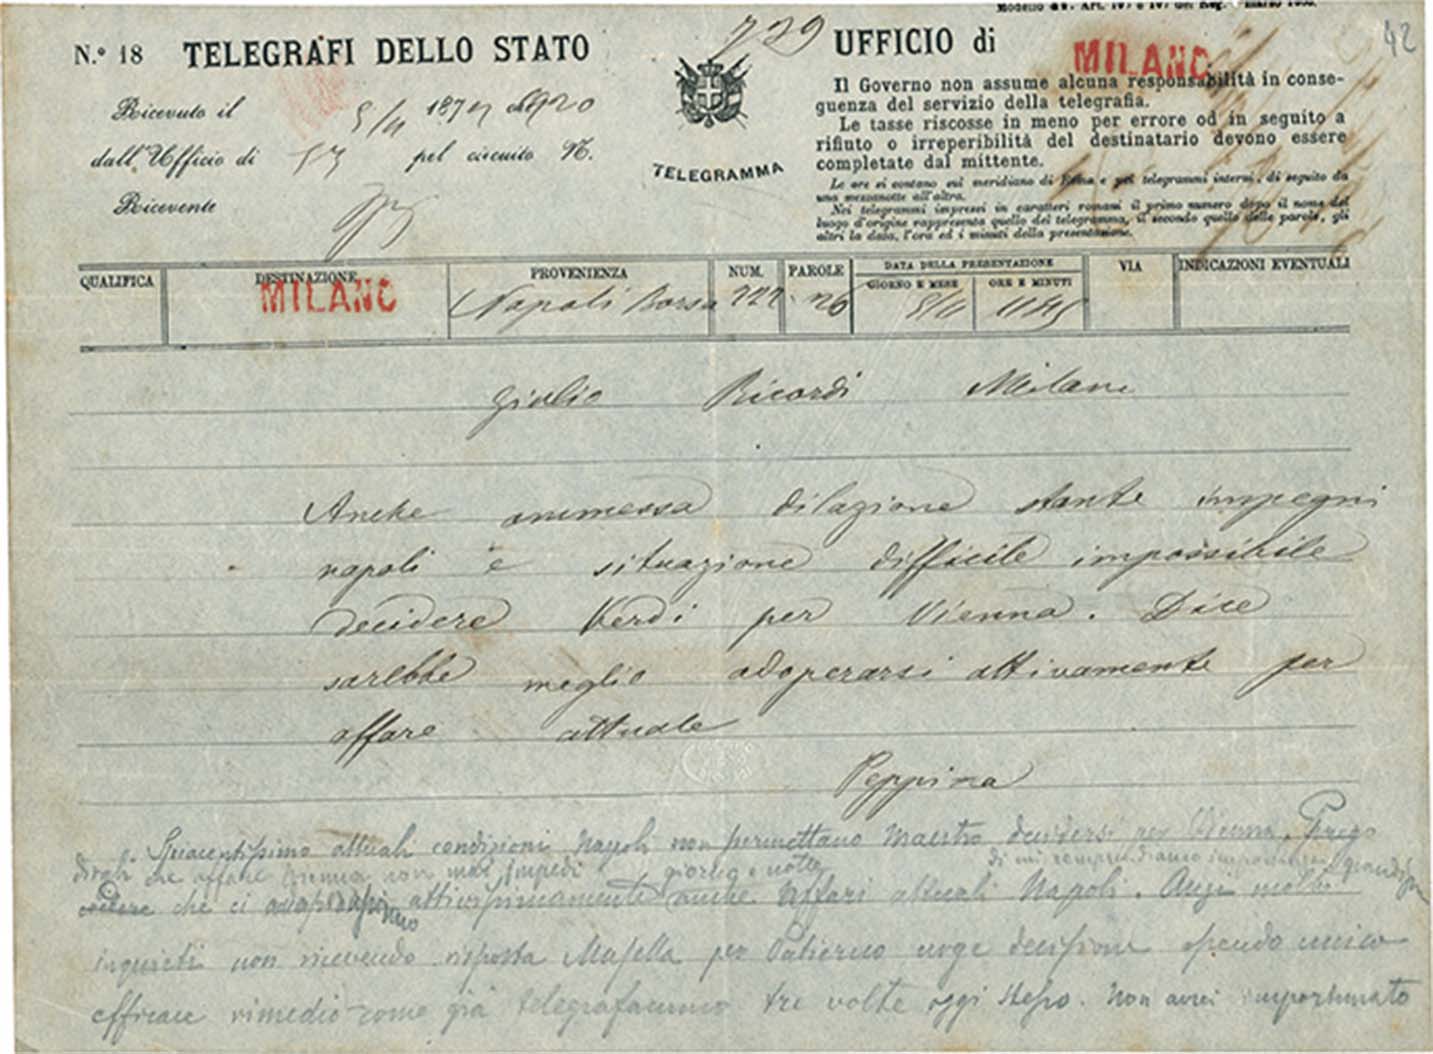 42
729
N.º 18 TELEGRAFI DELLO STATO
UFFICIO di MILANO
Il Governo non assume alcuna responsabilità in conse-
guenza del servizio della telegrafia.
Le tasse riscosse in meno per errore od in seguito a
rifiuto o irreperibilità del destinatario devono essere
completate dal mittente.
Le ore si contano sul meridiano di Roma e pei telegrammi interni, di seguito da
una mezzanotte all'altra.
Nei telegrammi impressi in caratteri romani il primo numero dopo il nome del
luogo d'origine rappresenta quello del telegramma, il secondo quello delle parole, gli
altri la data, l'ora ed i minuti della presentazione.
Ricevuto il 187
dall'Ufficio di 57 pel circuito N.
Ricevente
TELEGRAMMA
QUALIFICA DESTINAZIONE PROVENIENZA NUM. PAROLE DATA DELLA PRESENTAZIONE VIA INDICAZIONI EVENTUALI
GIORNO E MESE ORE E MINUTI
MILANO Napoli Borsa 222 26
Giulio Ricordi Milano
Anche ammessa dilazione stante impegni
napoli e situazione difficile impossibile
decidere Verdi per Vienna. Dice
sarebbe meglio adoperarsi attivamente per
affare attuale
Peppina
attuali condizioni Napoli non permettano Maestro decidersi per Vienna. Prego
dirgli che affare Vienna non mai impedì giorno e notte
che ci attivissimamente anche affari attuali Napoli. Anzi molto
inquieti non ricevendo risposta Masella per Patierno urge decisione essendo unico
efficace rimedio come già telegrafammo tre volte oggi stesso. Non avrei importunato